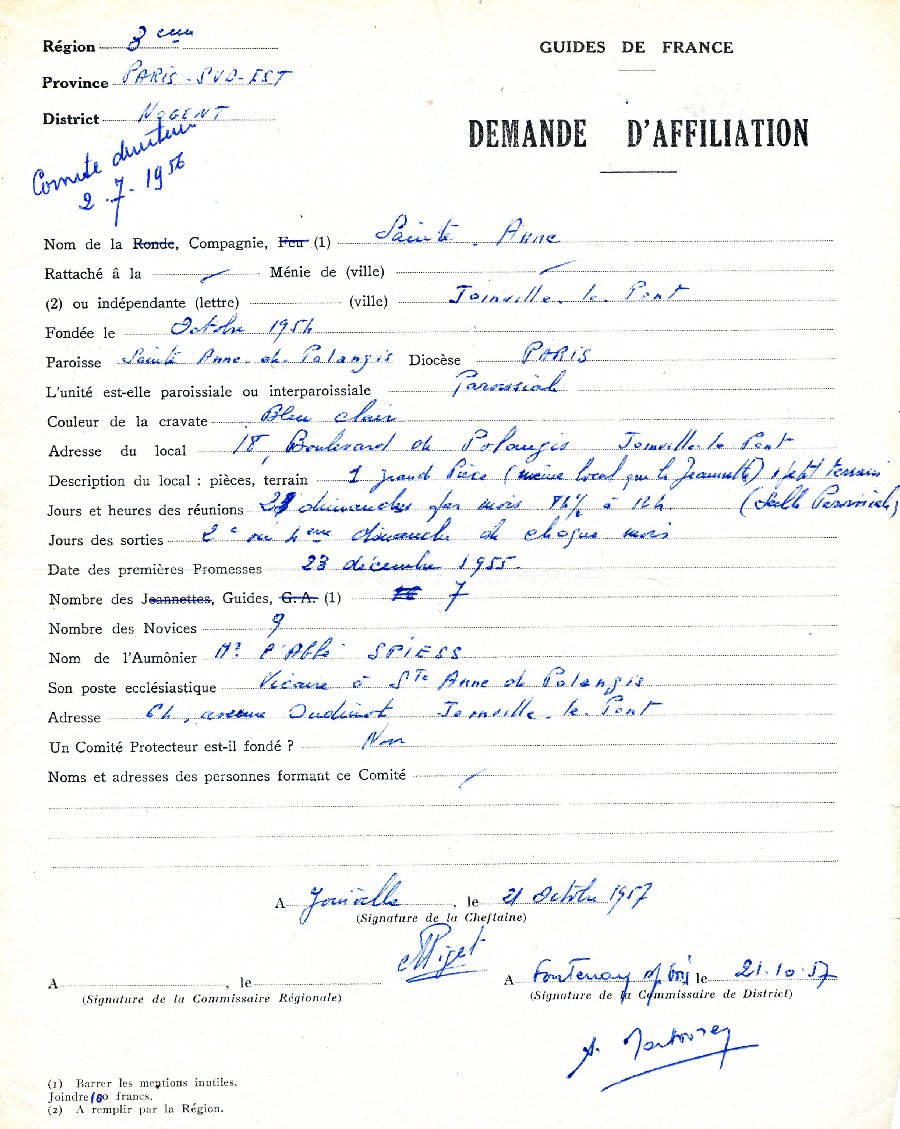 Région 3eme
GUIDES DE FRANCE
Province PARIS-SUD-EST
District NOGENT
DEMANDE D'AFFILIATION
Comité directeur
2-7-1956
Nom de la Ronde, Compagnie, Feu (1) Sainte Anne
Rattaché â la Ménie de (ville)
(2) ou indépendante (lettre) (ville) Joinville-le-Pont
Fondée le Octobre 1954
Paroisse Sainte Anne de Polangis Diocèse PARIS
L'unité est-elle paroissiale ou interparoissiale Paroissiale
Couleur de la cravate Bleu clair
Adresse du local 18, Boulevard de Polangis Joinville-le-Pont
Description du local : pièces, terrain 1 grand Pièce (même local que les Jeannettes) 1 petit terrain
Jours et heures des réunions 2 dimanches par mois à 12h (Salle Paroissiale)
Jours des sorties 2e ou 4eme dimanche de chaque mois
Date des premières Promesses 23 décembre 1955
Nombre des Jeannettes, Guides, G.A. (1) 7
Nombre des Novices 9
Nom de l'Aumônier Mr l'Abbé SPIESS
Son poste ecclésiastique Vicaire à Ste Anne de Polangis
Adresse 64, avenue Oudinot Joinville-le-Pont
Un Comité Protecteur est-il fondé ? Non
Noms et adresses des personnes formant ce Comité
A Joinville, le 21 Octobre 1957
(Signature de la Cheftaine)
A , le
A Fontenay s/bois le 21.10.57
(Signature de la Commissaire Régionale)
(Signature de la Commissaire de District)
(1) Barrer les mentions inutiles.
Joindre 180 francs.
(2) A remplir par la Région.